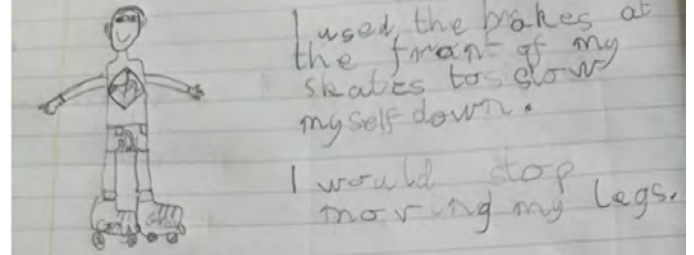 I used the brakes at
the front of my
skates to slow
myself down.
I would stop
moving my legs.